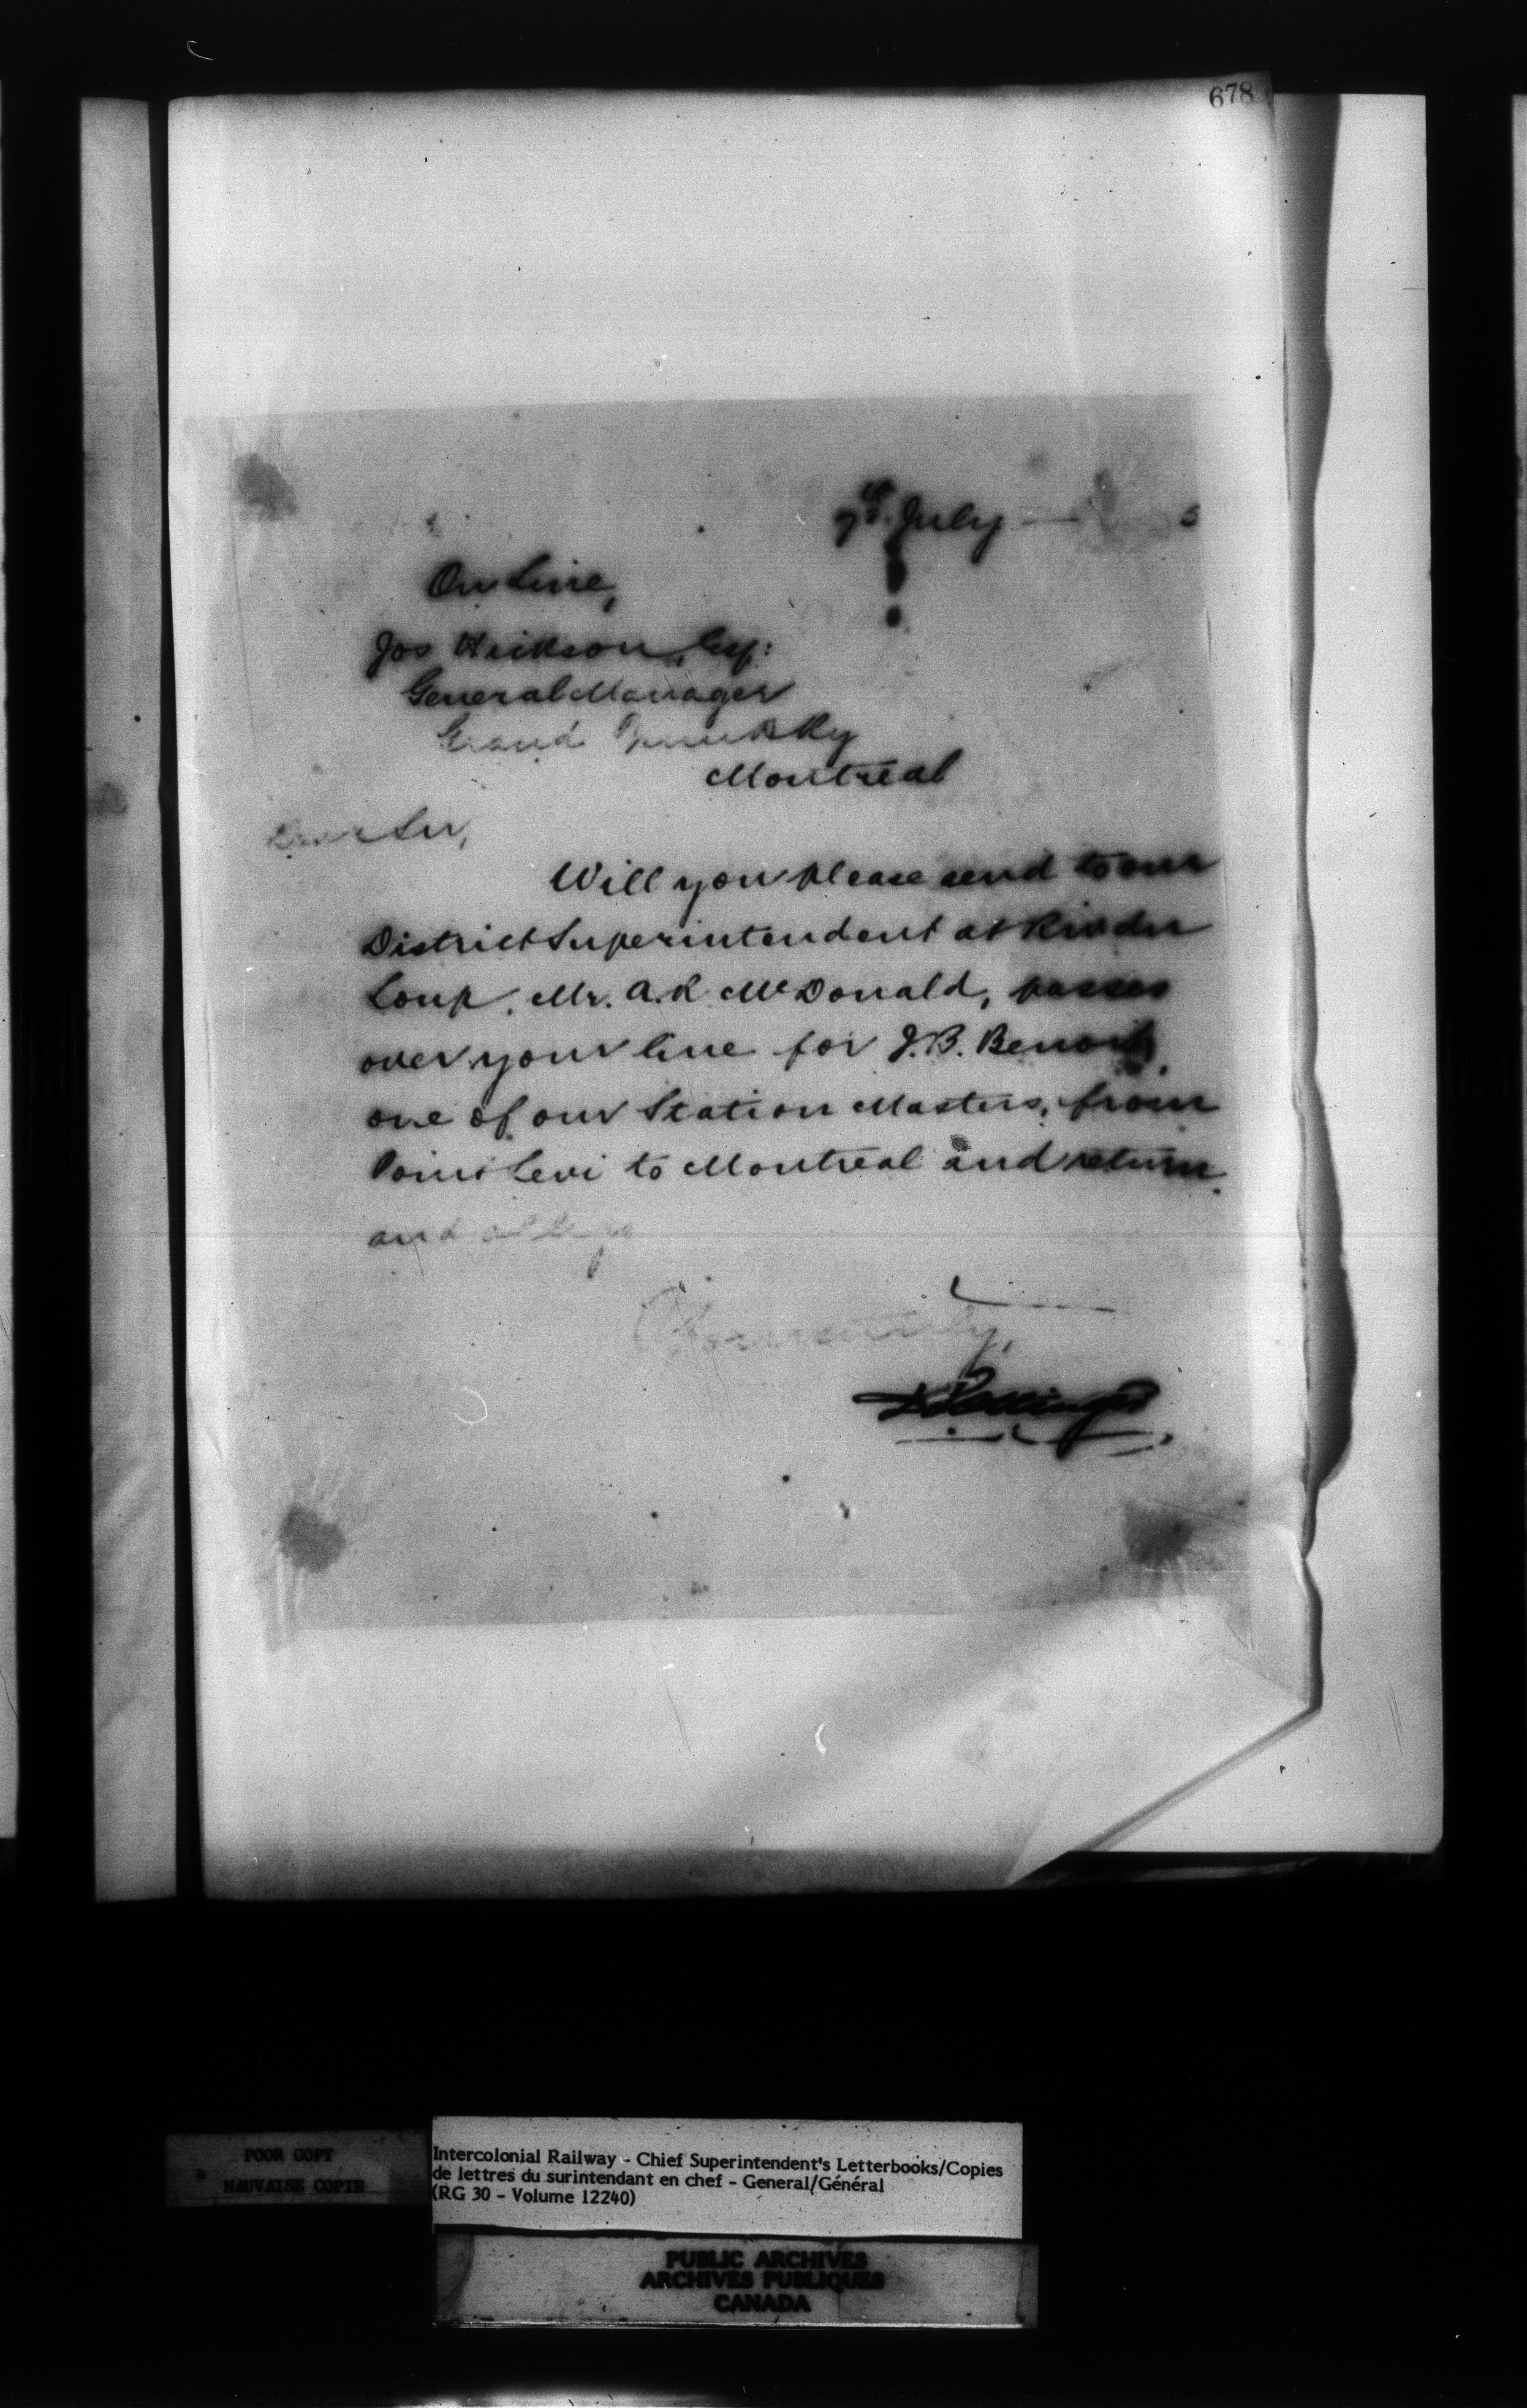 678
7th July — 5
On Line,
Jos Hickson, Esq:
General Manager
Grand Trunk Ry
Montreal
Dear Sir,
Will you please send to our
District Superintendent at Riv du
Loup, Mr. A. R McDonald, passes
over your line for J. B. Benoit,
one of our Station Masters, from
Point Levi to Montreal and return
and oblige
Yours truly,
D Pottinger
POOR COPY
MAUVAISE COPIE
Intercolonial Railway - Chief Superintendent's Letterbooks/Copies
de lettres du surintendant en chef - General/Général
(RG 30 - Volume 12240)
PUBLIC ARCHIVES
ARCHIVES PUBLIQUES
CANADA